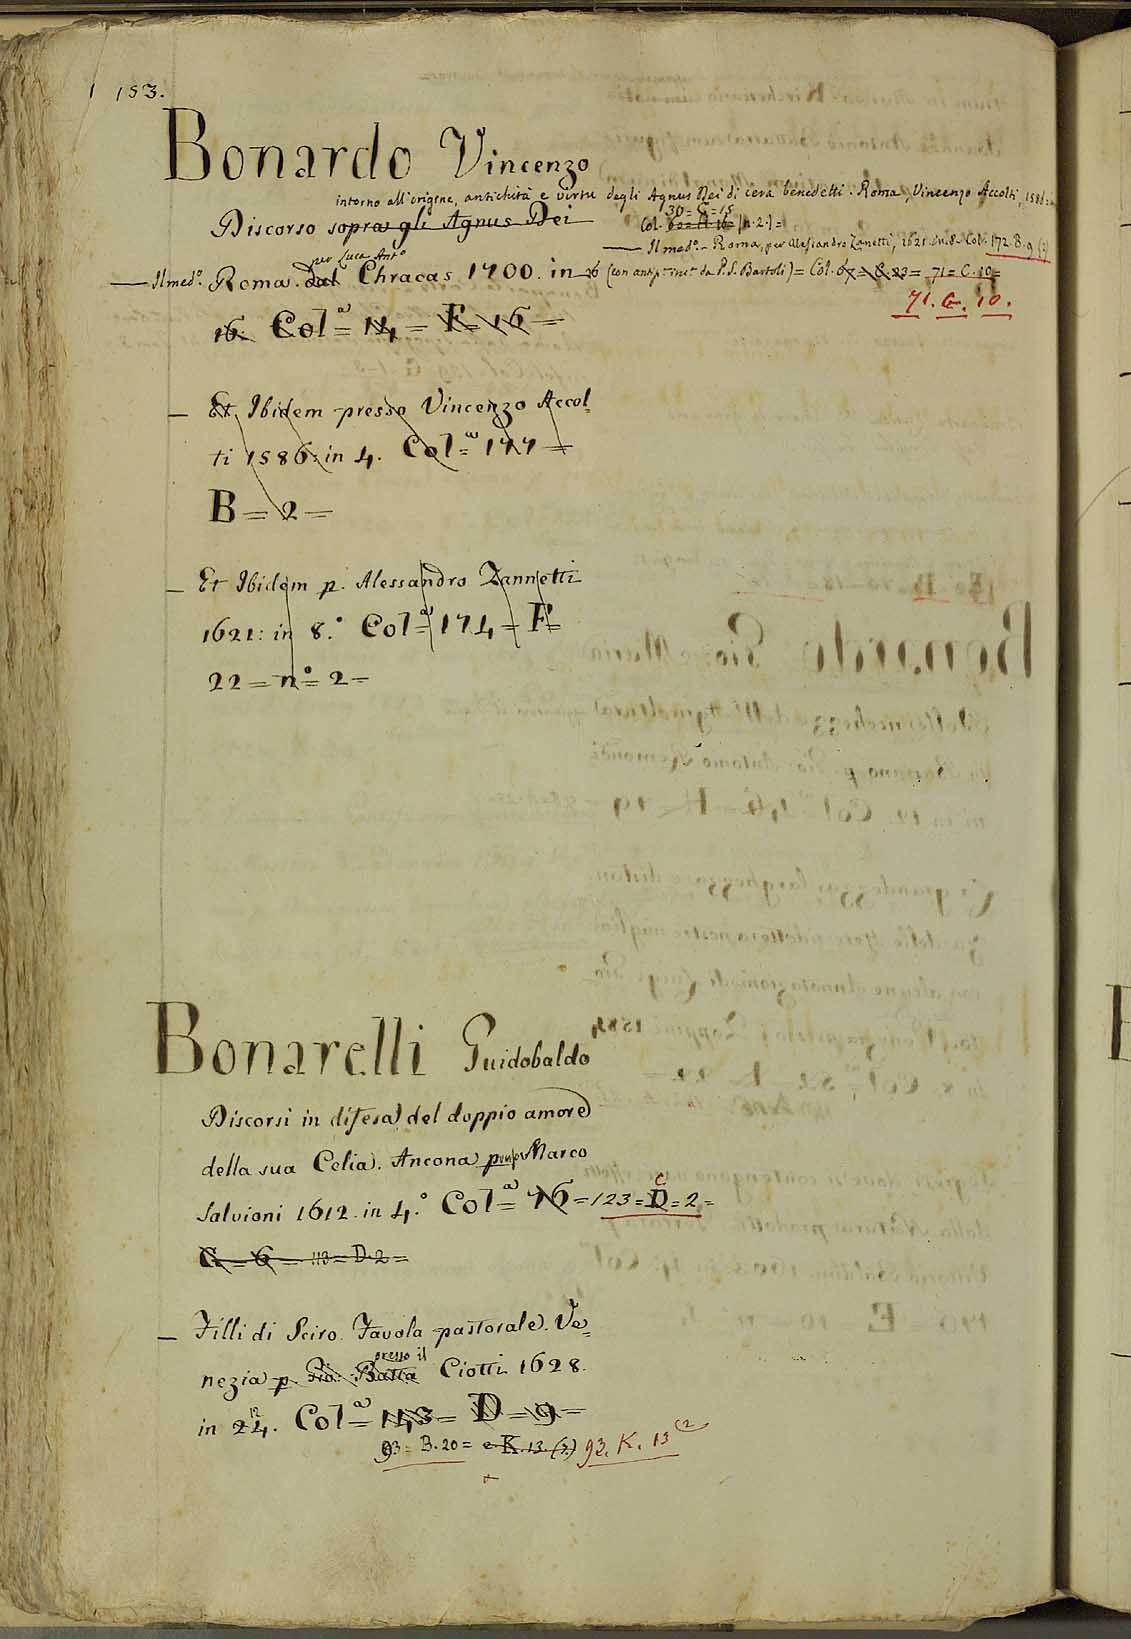 153.
Bonardo Vincenzo
intorno all'origine, antichità e virtu degli Agnus Dei di cera benedetti. Roma, Vincenzo Accolti, 1586
Discorso sopra gli Agnus Dei
30 = C = 15
Col. (n. 2.) =
— Il med.° - Roma, per Alessandro Zanetti, 1621. in 8. Col. 172. B. 9 (2)
per Luca Ant.°
— Il med.° Roma. Dal Chracas 1700. in 16 (con antip. inc.e da P. S. Bartoli) = Col. 67 = & 23 = 71 = C. 10 =
71. G. 10.
16. Col.a = 14 = F = 16 =
— Et Ibidem presso Vincenzo Accol=
ti 1586: in 4. Col.a = 177 =
B = 2 =
— Et Ibidem p. Alessandro Zannetti
1621: in 8.° Col.a = 174 = F =
22 = n.° = 2 =
Bonarelli Guidobaldo
Discorsi in difesa del doppio amore
della sua Celia. Ancona presso Marco
Salvioni 1612. in 4.° Col.a = 76 = 123 = D = 2 =
C
G = 6 = 113 = D. 2 =
— Filli di Sciro. Favola pastorale. Ve=
presso il
nezia p. Gio: Batta Ciotti 1628.
12
in 24. Col.a = 143 = D = 9 =
93 = B. 20 = e K. 13. (2.) 93. K. 13 (2